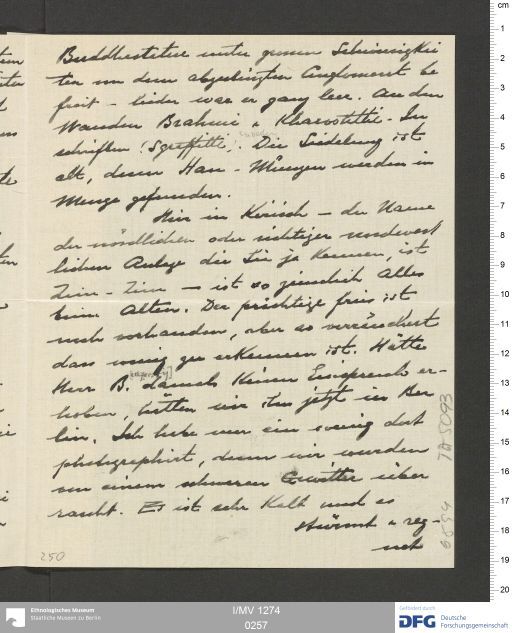 Buddhastatue unter grossen Schwierigkei
ten von dem abgestürzten Conglomerat be
freit - leider war er ganz leer. An den
Wänden Brahmi & Kharosthi - In
schriften (Sgraffitti). Die Siedelung ist
alt, denn Han - Münzen werden in
Menge gefunden.
Hier in Kirisch - der Name
der nördlichen oder richtiger nordwest
lichen Anlage die Sie ja kennen, ist
Sim - Sim - ist so ziemlich Alles
beim Alten. Der prächtige Fries ist
noch vorhanden, aber so verräuchert
dass wenig zu erkennen ist. Hätte
Herr B. damals keinen Einspruch er-
hoben, hätten wir ihn jetzt in Ber
lin. Ich habe nur ein wenig dort
photographirt, denn wir wurden
von einem schweren Gewitter über
rascht. Es ist sehr kalt und es
stürmt & reg-
net
250
TA 5093
Ethnologisches Museum
Staatliche Museen zu Berlin
I/MV 1274
0257
Gefördert durch
DFG Deutsche
Forschungsgemeinschaft
cm
1
2
3
4
5
6
7
8
9
10
11
12
13
14
15
16
17
18
19
20